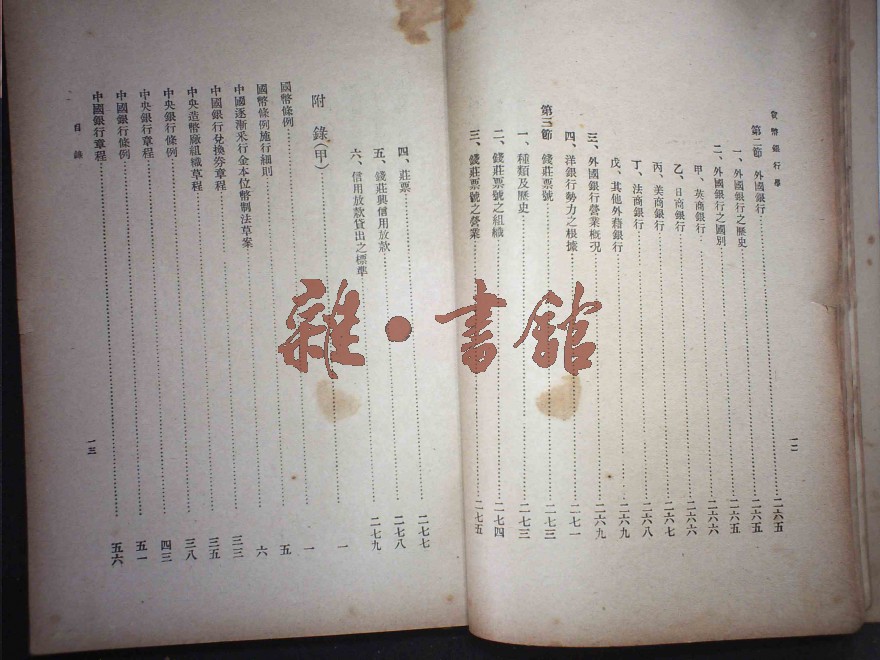 貨幣銀行學
第二節 外國銀行……二六五
一、外國銀行之歷史……二六五
二、外國銀行之國別……二六六
甲、英商銀行……二六六
乙、日商銀行……二六七
丙、美商銀行……二六八
丁、法商銀行……二六九
戊、其他外籍銀行……二六九
三、外國銀行營業概況……二六九
四、洋銀行勢力之根據……二七一
第三節 錢莊票號……二七三
一、種類及歷史……二七三
二、錢莊票號之組織……二七四
三、錢莊票號之營業……二七五
一二
四、莊票……二七七
五、錢莊與信用放款……二七八
六、信用放款貸出之標準……二七九
附錄(甲)……一
國幣條例……一
國幣條例施行細則……五
中國逐漸采行金本位幣制法草案……六
中國銀行兌換券章程……三三
中央造幣廠組織草程……三五
中央銀行條例……三八
中央銀行章程……四三
中國銀行條例……五一
中國銀行章程……五六
目錄
一三
雜·書館